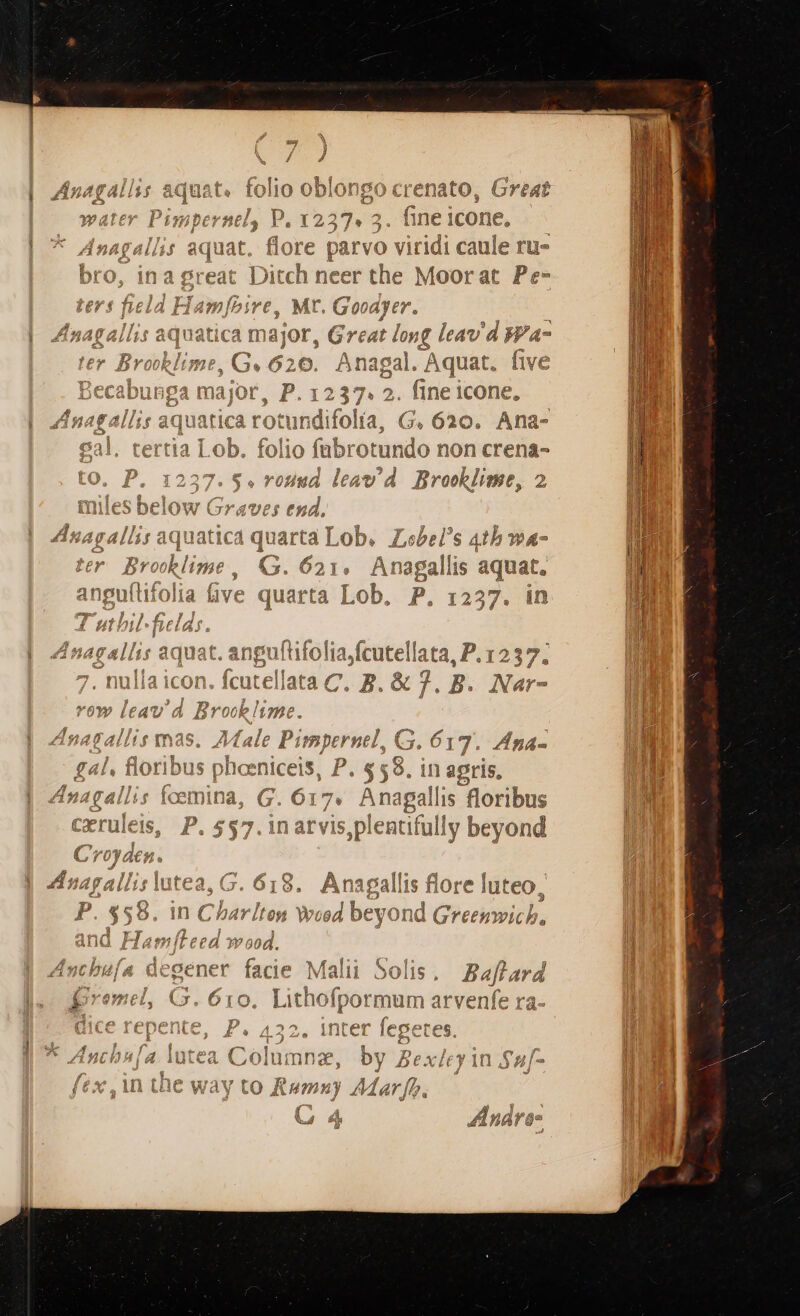 ( 7 )
Anagallis aquat. folio oblongo crenato, Great
water Pimpernel, P. 1237. 3. fine icone.
* Anagallis aquat. flore parvo viridi caule ru-
bro, in a great Ditch neer the Moor at Pe-
ters field Hamſhire, Mr. Goodyer.
Anagallis aquatica major, Great long leav'd Wa-
ter Brooklime, G. 620. Anagal. Aquat. ſive
Becabunga major, P. 1237. 2. fine icone.
Anagallis aquatica rotundifolia, G. 620. Ana-
gal. tertia Lob. folio ſubrotundo non crena-
to. P. 1237. 5. round leav'd Brooklime, 2
miles below Graves end.
Anagallis aquatica quarta Lob. Lobel's 4th wa-
ter Brooklime, G. 621. Anagallis aquat.
anguſtifolia ſive quarta Lob. P. 1237. in
Tuthil-fields.
Anagallis aquat. anguſtifolia, ſcutellata, P. 1237.
7. nulla icon. ſcutellata C. B. & J. B. Nar-
row leav'd Brooklime.
Anagallis mas. Male Pimpernel, G. 617. Ana-
gal. floribus phœniceis, P. 558. in agris.
Anagallis fœmina, G. 617. Anagallis floribus
cæruleis, P. 557. in arvis, plentifully beyond
Croyden.
Anagallis lutea, G. 618. Anagallis flore luteo,
P. 558. in Charlton wood beyond Greenwich.
and Hamſteed wood.
Anchuſa degener facie Malii Solis. Baſtard
Gromel, G. 610. Lithoſpormum arvenſe ra-
dice repente, P. 432. inter ſegetes.
* Anchuſa lutea Columnæ, by Bexley in Suſ-
ſex, in the way to Rumny Marſh.
C 4 Andro-